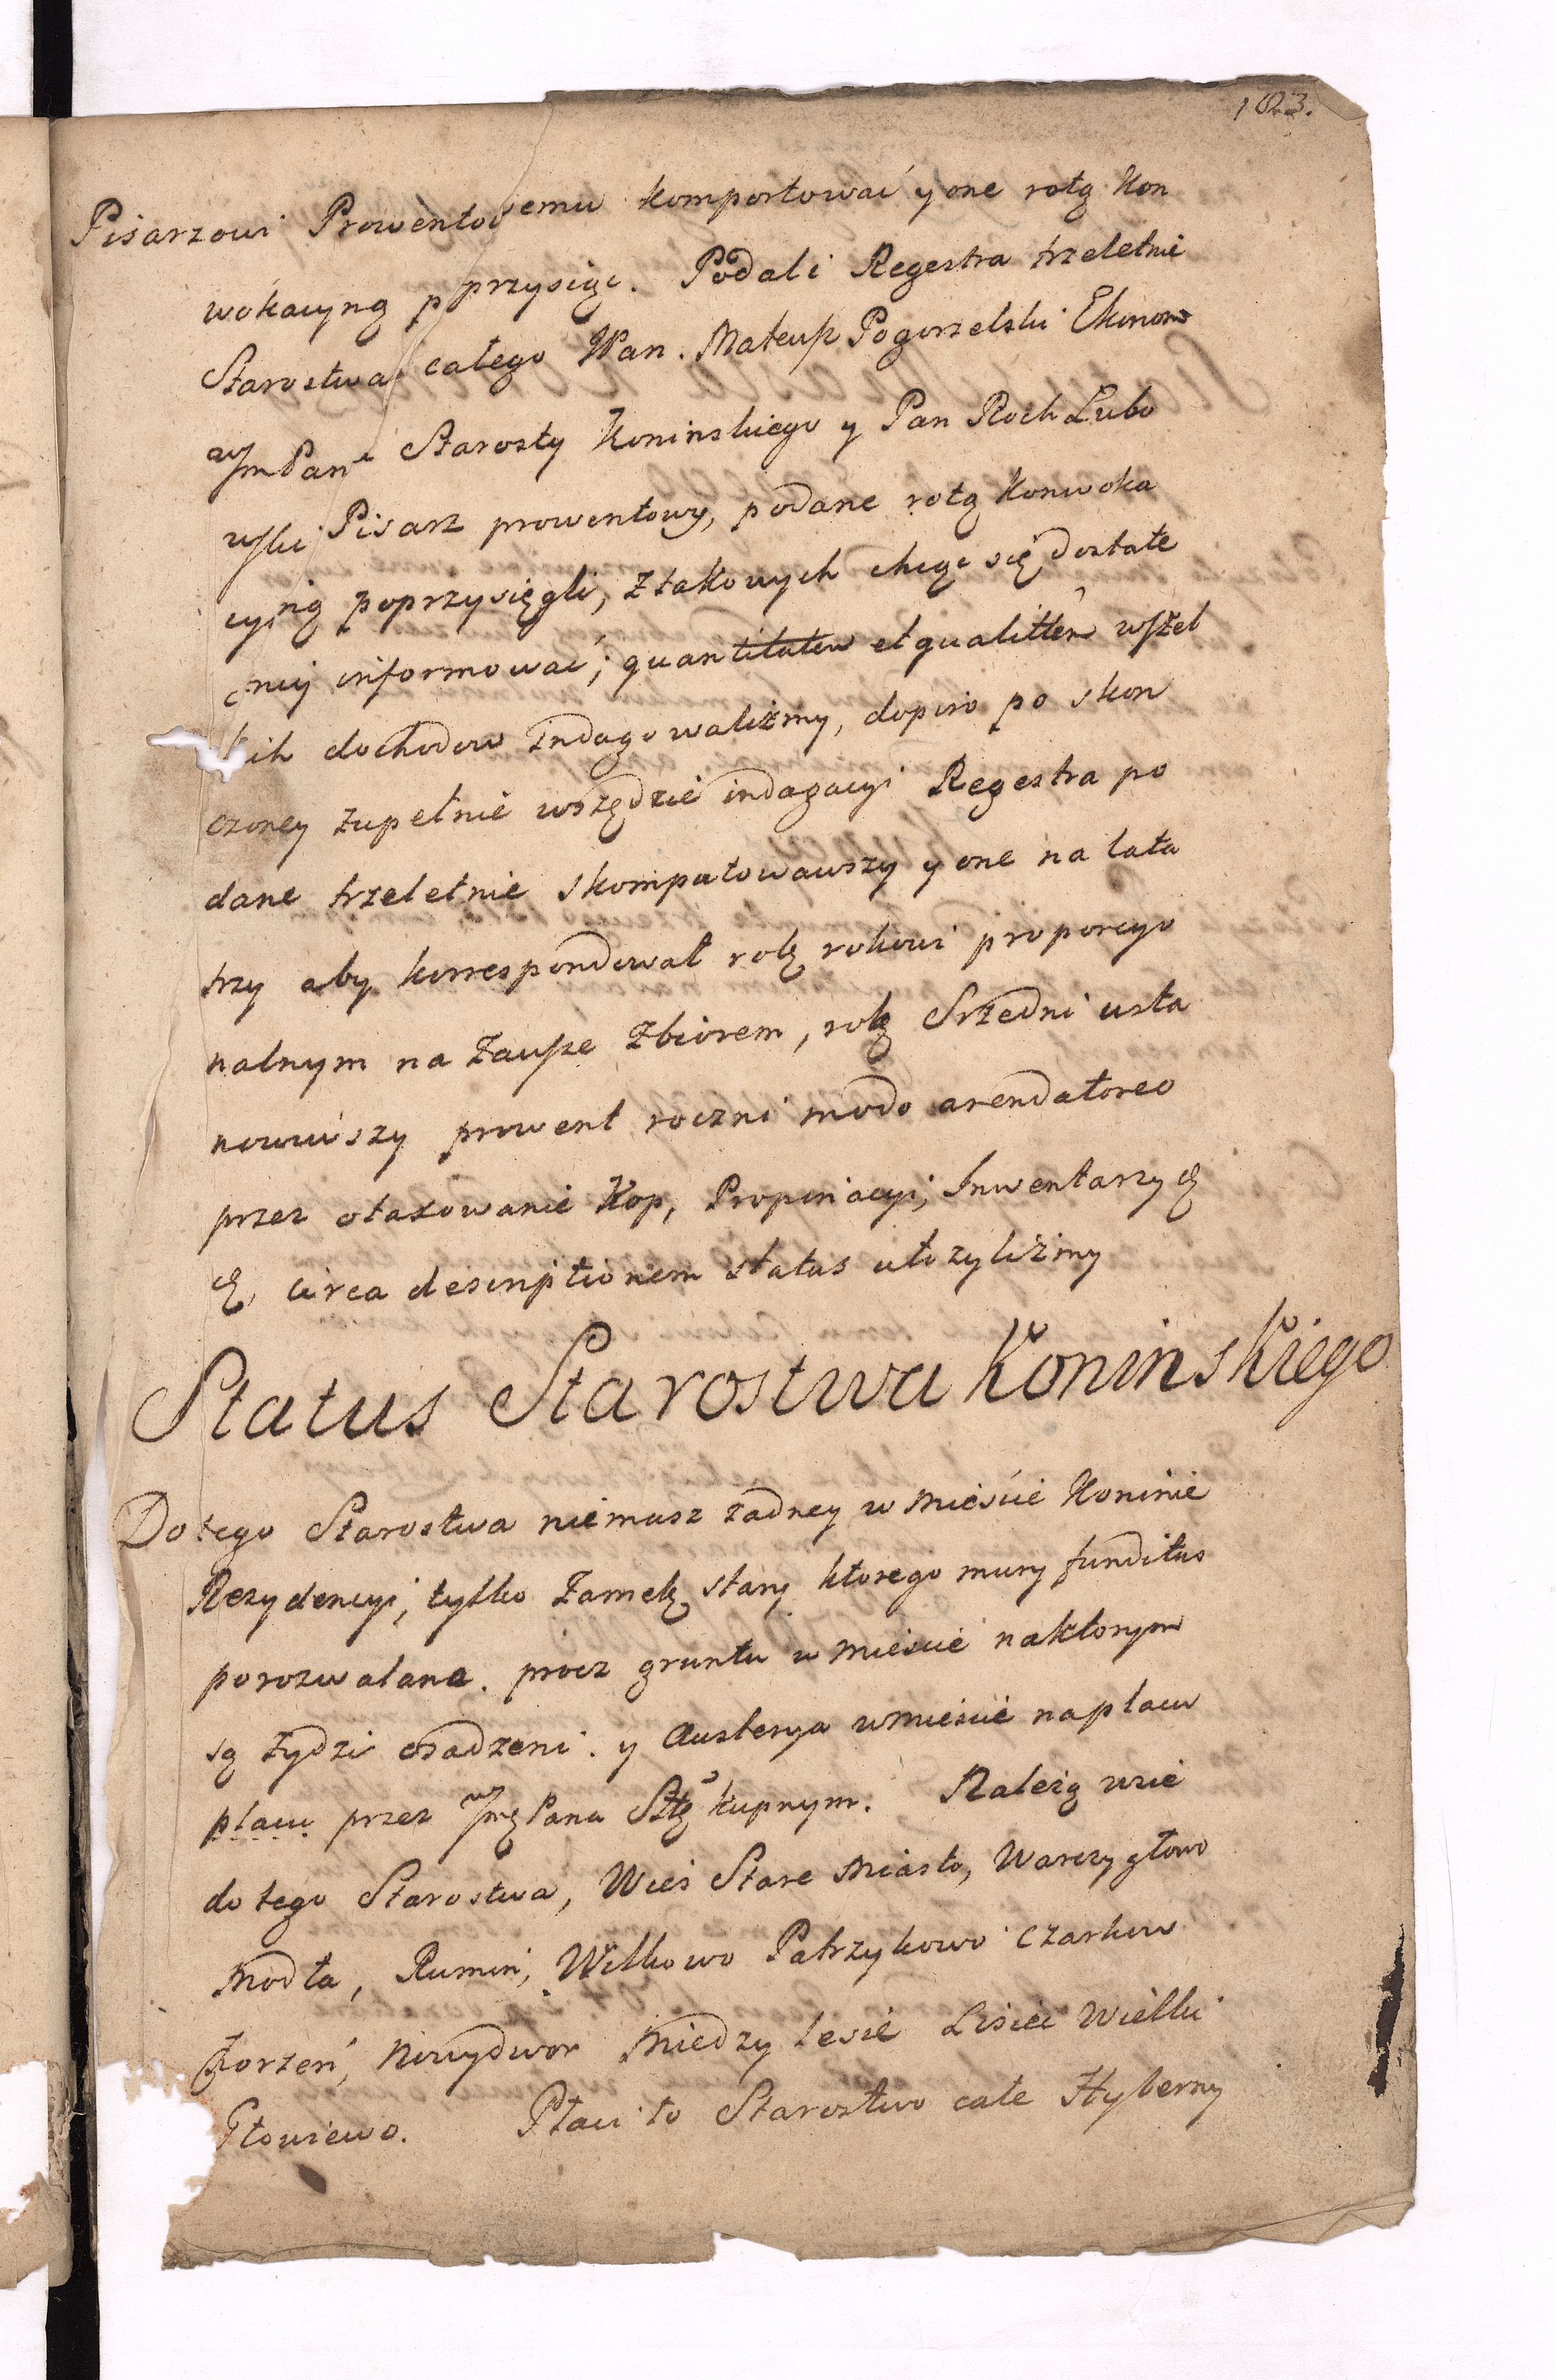 103.
Pisarzowi Prowentowemu komportować y one rotą Kon
wokacyną poprzysiąc. Podali Regestra trzeletnie
Starostwa całego JPan. Mateusz Pogorzelski Ekonom
JmPana Starosty Koninskiego y Pan Roch Lubo
wski Pisarz prowentowy, podane rotą Konwoka
cyiną poprzysięgli, z takowych chcąc się dostate
cznij informować; quantitatem et qualittem wszel
kich dochodow Indagowaliżmy, dopiro po skon
czoney zupełnie wszędzie indagacyi Regestra po
dane trzeletnie skomputowawszy y one na lata
trzy aby korrespondował rok rokowi proporcyo
nalnym na zawsze zbiorem, rok Srzedni usta
nowiwszy prowent roczni modo arendatoreo
przez otaxowanie Kop, Propinacyi, Inwentarzy &
&, circa descriptionem status ułożyliżmy
Status Starostwa Koninskiego
Do tego Starostwa niemasz żadney w Mieście Koninie
Rezydencyi, tylko Zamek stary ktorego mury funditus
porozwalane. procz gruntu w Mieście naktorym
są żydzi osadzeni. y Austerya wmieście naplacu
placu przez JmęPana Sttę kupnym. Należą wsie
do tego Starostwa, Wieś Stare Miasto, Warzygłowo
Modła, Rumin, Wilkowo Patrzykowo Czarkow
Gorzeń, Nowydwor Miedzylesie Lisiec Wielki
Głowiewo. Płaci to Starostwo całe Hyberny